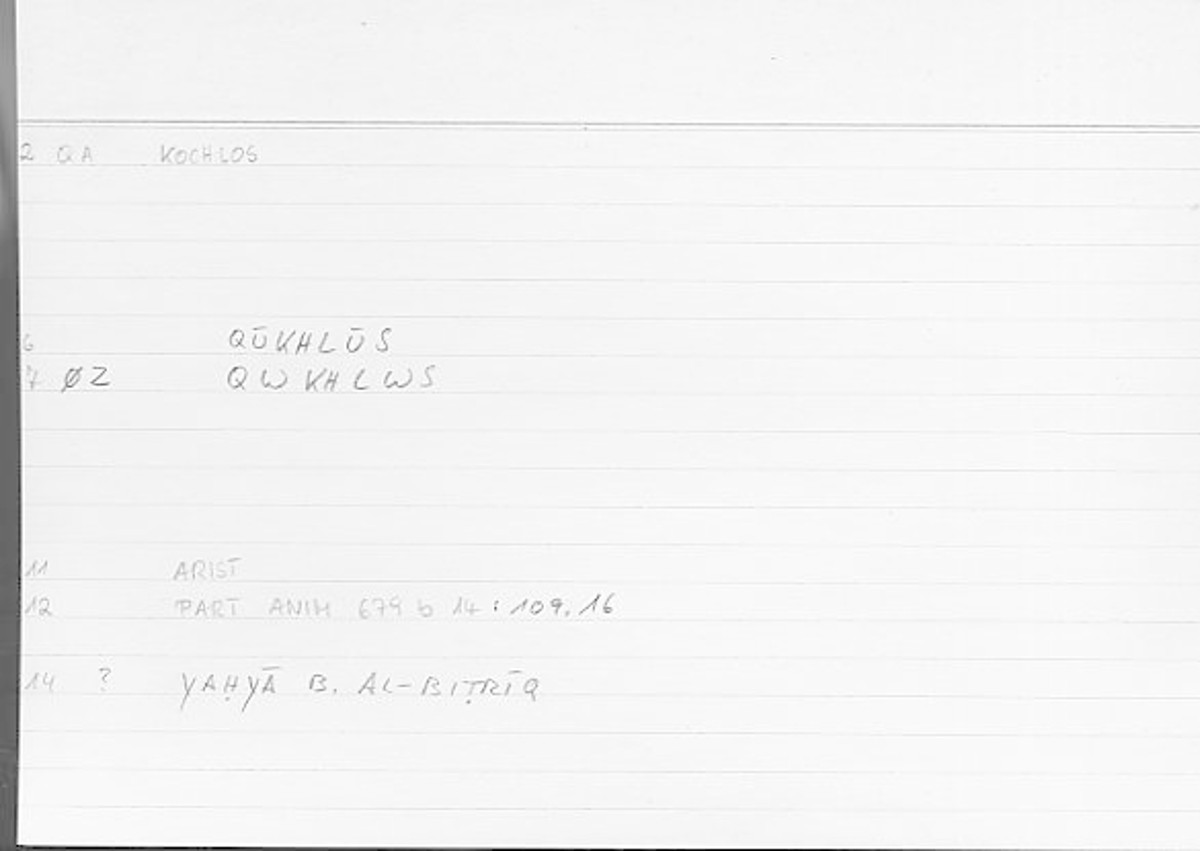 2 QA KOCHLOS
6 QŪKHLŪS
7 ØZ QWKHLWS
11 ARIST
12 PART ANIM 679 b 14 : 109,16
14 ? YAḤYĀ B. AL-BIṬRĪQ